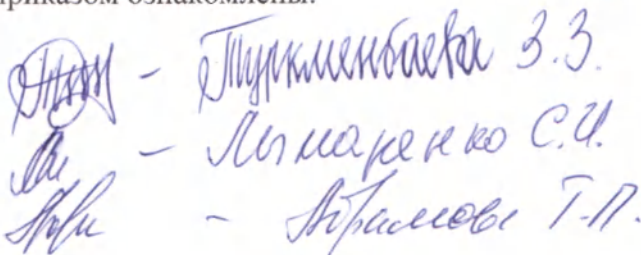 приказом ознакомлены.
– Туркменбаева З.З.
– Лымаренко С.И.
– Абрамова Т.П.